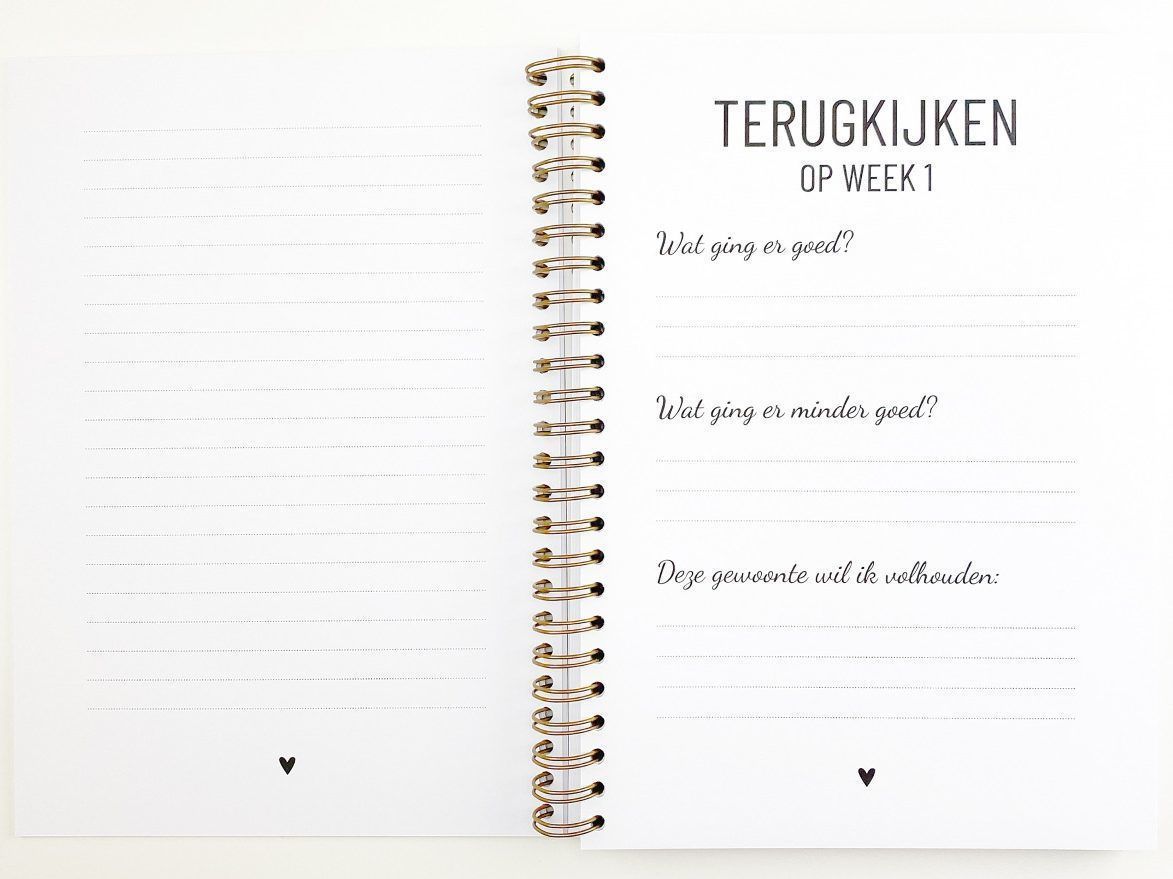 TERUGKIJKEN
OP WEEK 1
Wat ging er goed?
Wat ging er minder goed?
Deze gewoonte wil ik volhouden: